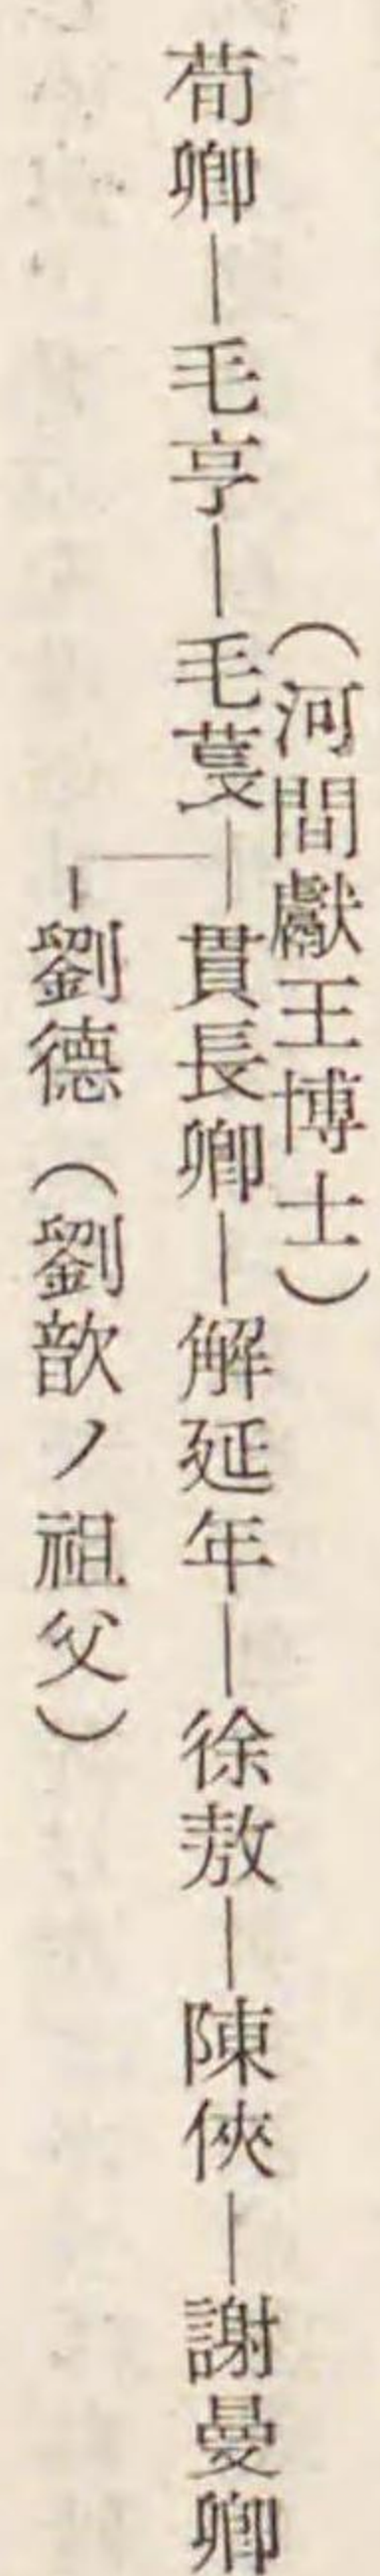 (河間獻王博士)
荀卿―毛亨―毛萇―貫長卿―解延年―徐敖―陳俠―謝曼卿
―劉德(劉歆ノ祖父)